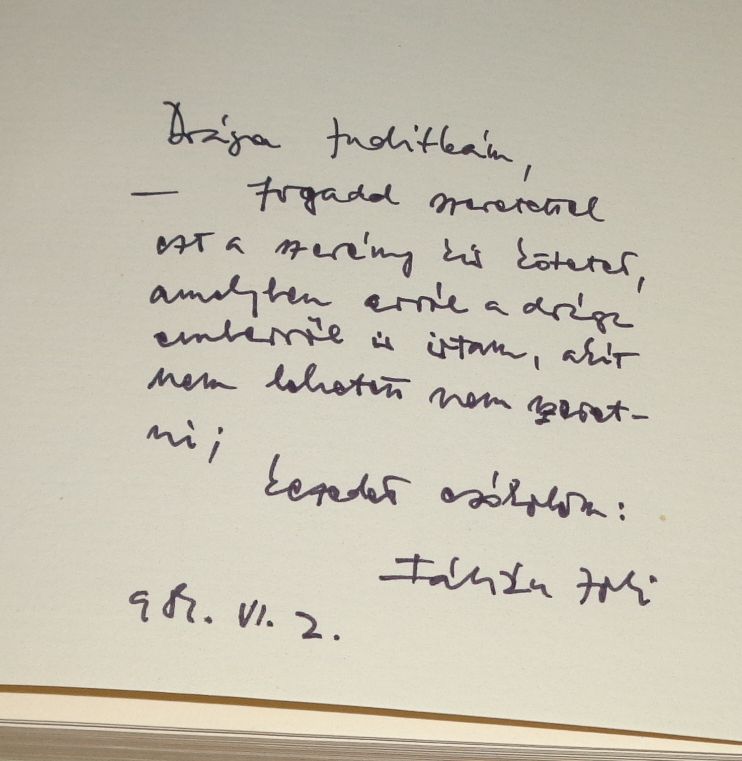 Drága Juditkám,
— Fogadd szeretettel
ezt a szerény kis kötetet,
amelyben erről a drága
emberről is írtam, akit
nem lehetett nem szeret-
ni;
Kezedet csókolom:
Zoli
VI. 2.